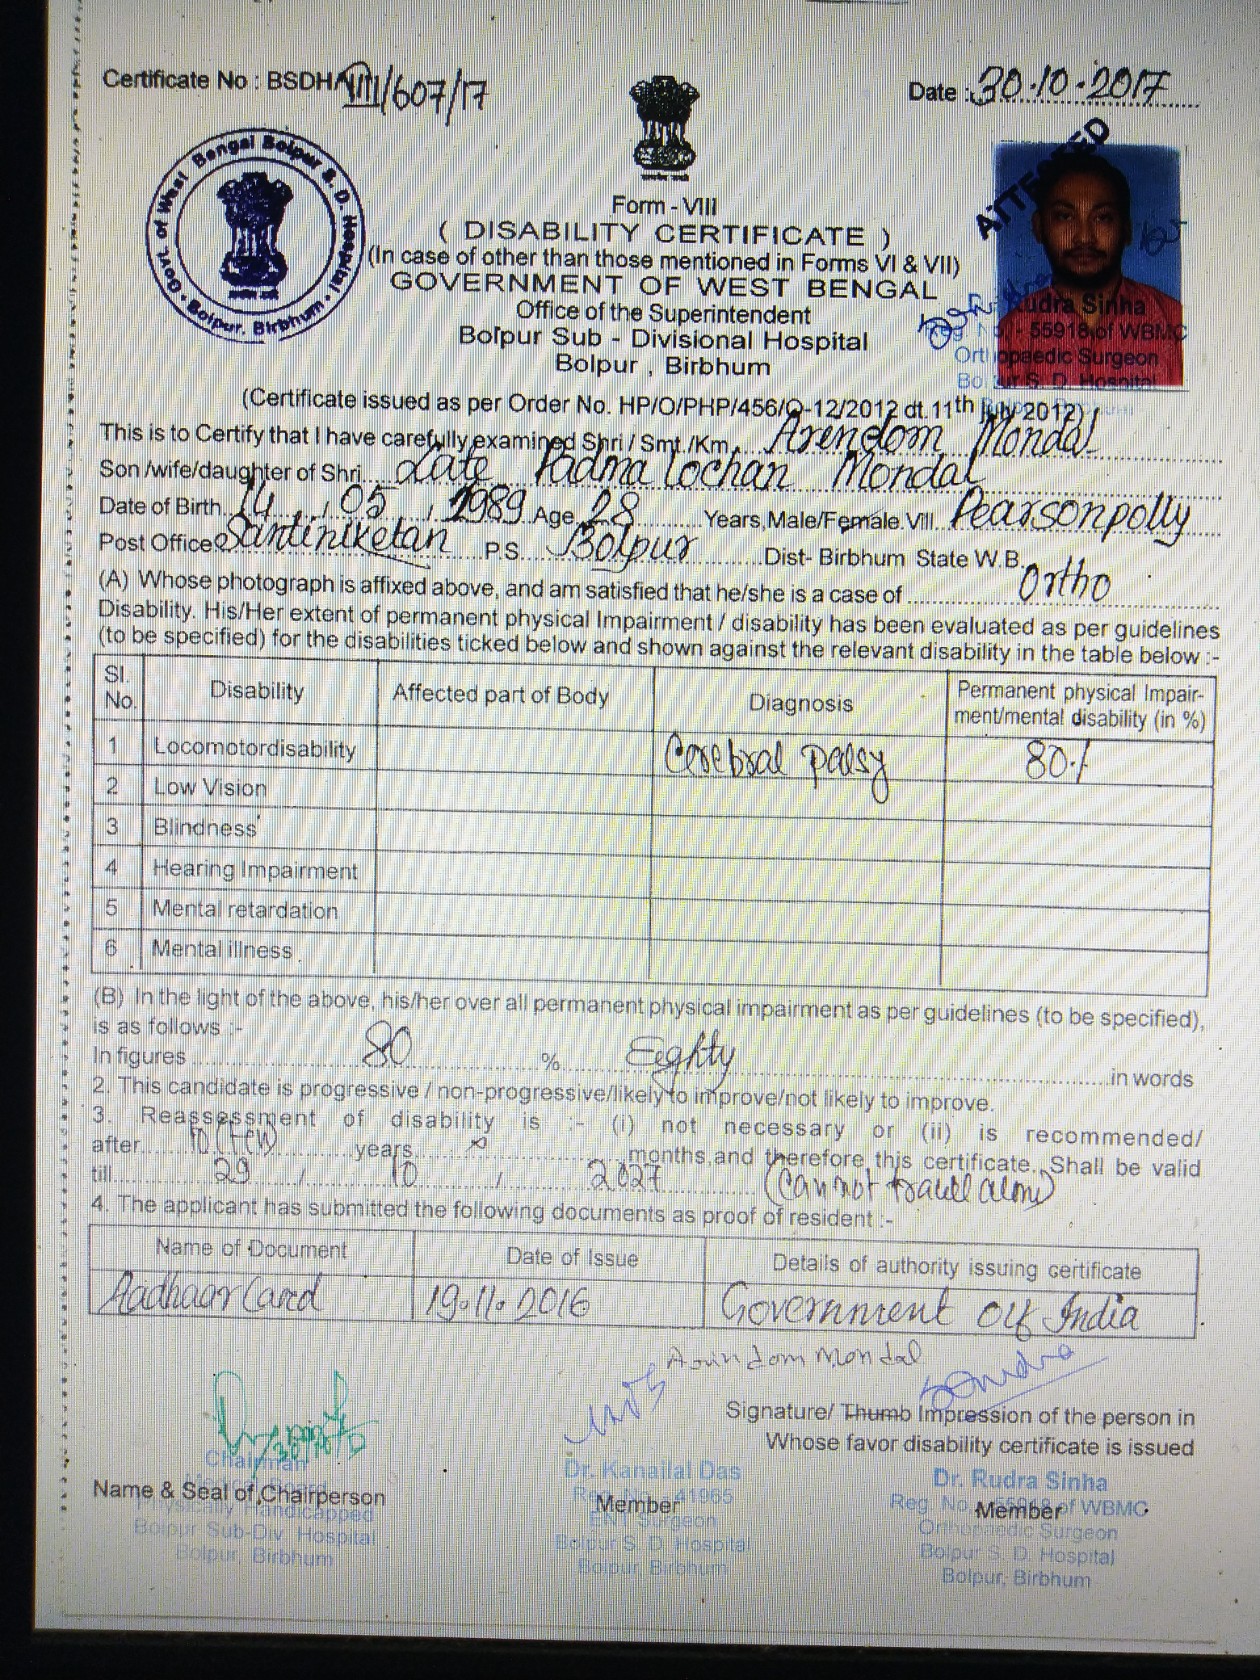 Certificate No : BSDH/VIII/607/17
Date : 30.10.2017
Govt. of West Bengal Bolpur S. D. Hospital
Bolpur, Birbhum
ATTESTED
Form - VIII
( DISABILITY CERTIFICATE )
(In case of other than those mentioned in Forms VI & VII)
GOVERNMENT OF WEST BENGAL
Office of the Superintendent
Bolpur Sub - Divisional Hospital
Bolpur , Birbhum
Rudra Sinha
55918 of WBMC
Orthopaedic Surgeon
Bolpur S. D. Hospital
(Certificate issued as per Order No. HP/O/PHP/456/O-12/2012 dt.11th July 2012)
This is to Certify that I have carefully examined Shri / Smt./Km. Arendom Mondal
Son /wife/daughter of Shri Late Padma Lochan Mondal
Date of Birth 14 , 05 , 1989 Age 28 Years, Male/Female. Vill. Pearsonpolly
Post Office Santiniketan P.S. Bolpur Dist- Birbhum State W.B.
(A) Whose photograph is affixed above, and am satisfied that he/she is a case of Ortho
Disability. His/Her extent of permanent physical Impairment / disability has been evaluated as per guidelines
(to be specified) for the disabilities ticked below and shown against the relevant disability in the table below :-
Sl. No. Disability Affected part of Body Diagnosis Permanent physical Impair-
ment/mental disability (in %)
1 Locomotordisability Cerebral palsy 80·/.
2 Low Vision
3 Blindness
4 Hearing Impairment
5 Mental retardation
6 Mental illness
(B) In the light of the above, his/her over all permanent physical impairment as per guidelines (to be specified),
is as follows :-
In figures 80 % Eighty in words
2. This candidate is progressive / non-progressive/likely to improve/not likely to improve.
3. Reassessment of disability is :- (i) not necessary or (ii) is recommended/
after 10 (Ten) years × months,and therefore this certificate. Shall be valid
till 29 , 10 , 2027 (Can not travel alone)
4. The applicant has submitted the following documents as proof of resident :-
Name of Document Date of Issue Details of authority issuing certificate
Aadhaar Card 19.11.2016 Government Of India
Arindom Mondal
Signature/ Thumb Impression of the person in
Whose favor disability certificate is issued
Chairman
Name & Seal of Chairperson
Physically Handicapped
Bolpur Sub-Div. Hospital
Bolpur, Birbhum
Dr. Kanailal Das
Reg. No. 41965
Member
ENT Surgeon
Bolpur S. D. Hospital
Bolpur Birbhum
Dr. Rudra Sinha
Reg. No. of WBMC
Member
Orthopaedic Surgeon
Bolpur S. D. Hospital
Bolpur, Birbhum